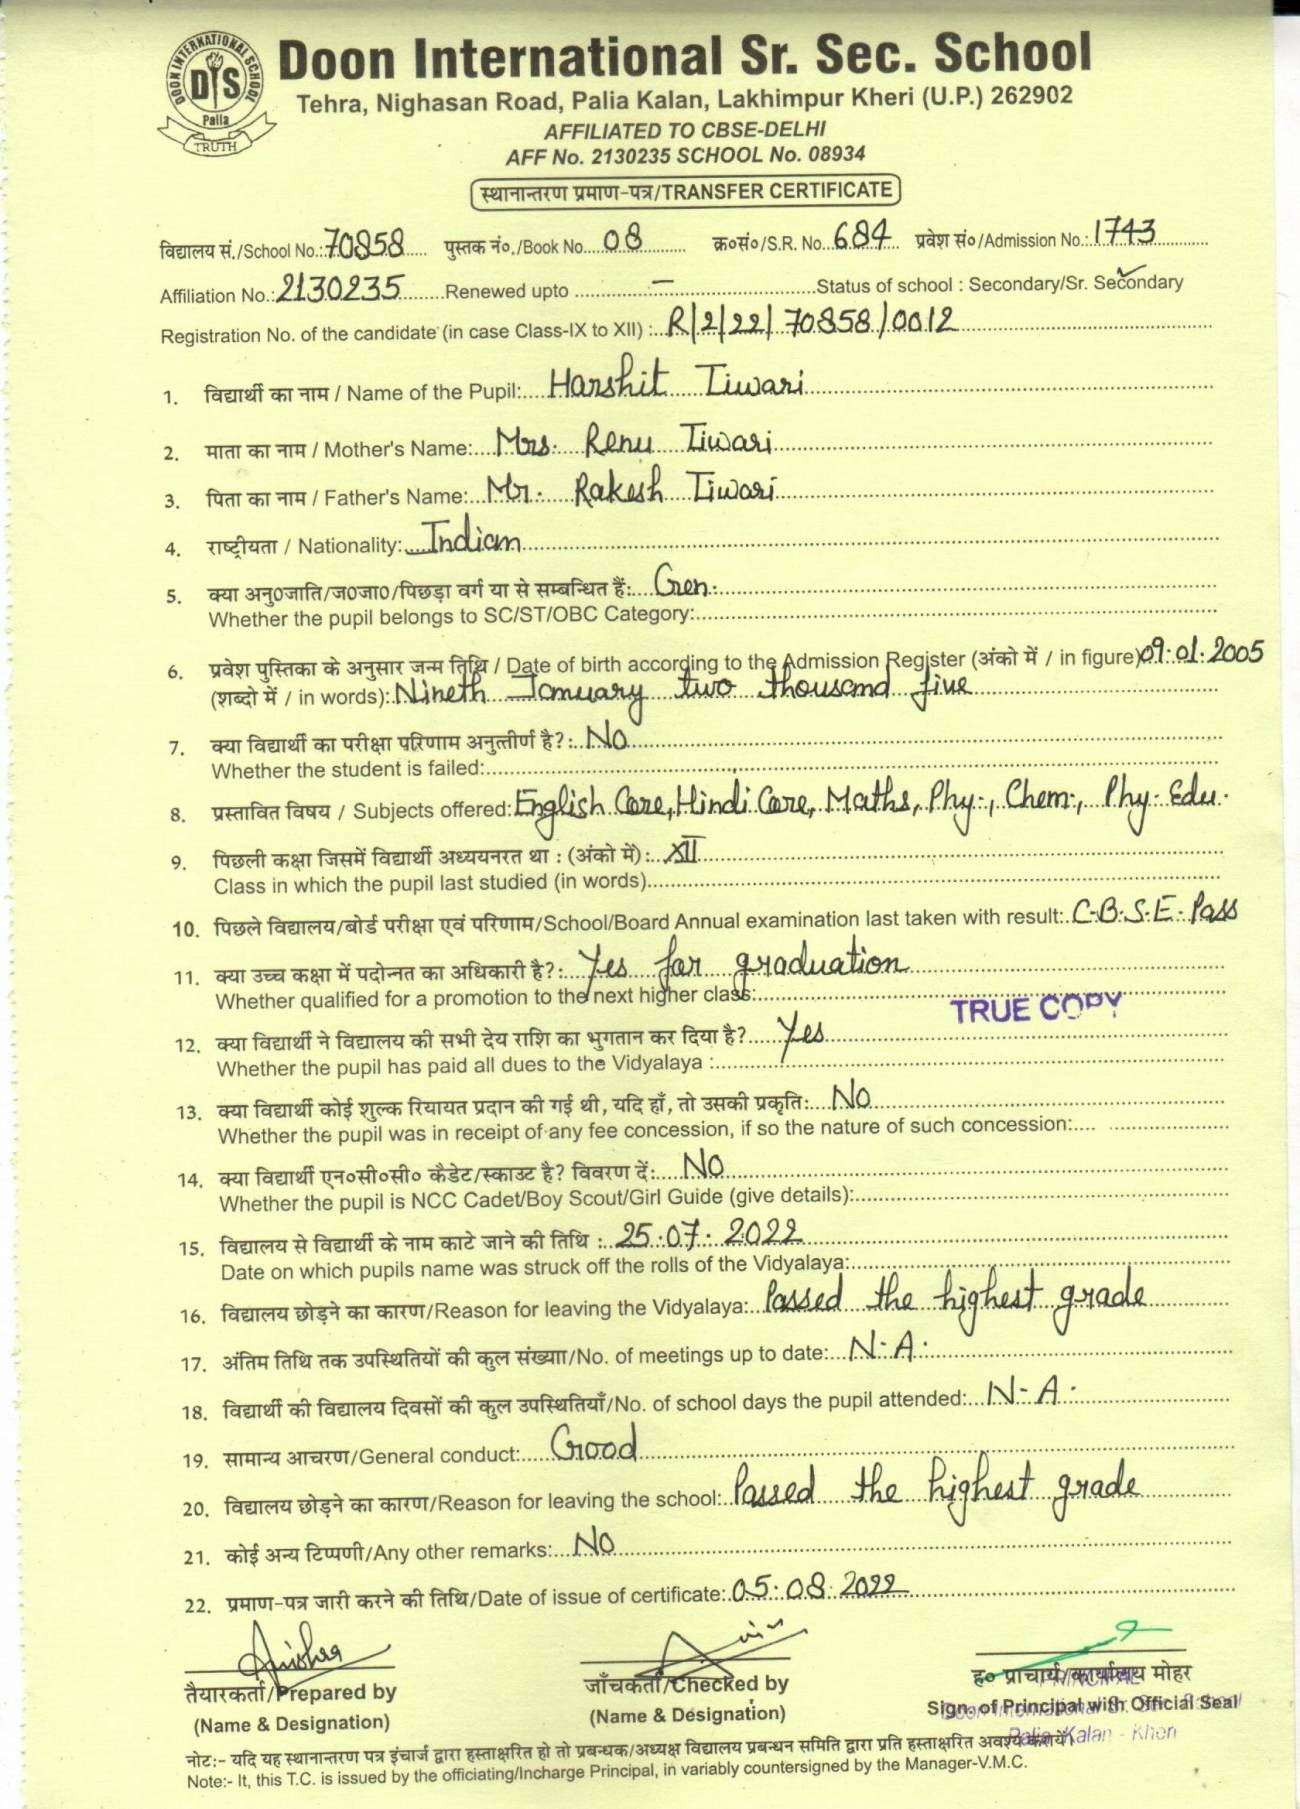 DOON INTERNATIONAL SCHOOL
DIS
Palia
TRUTH
Doon International Sr. Sec. School
Tehra, Nighasan Road, Palia Kalan, Lakhimpur Kheri (U.P.) 262902
AFFILIATED TO CBSE-DELHI
AFF No. 2130235 SCHOOL No. 08934
स्थानान्तरण प्रमाण-पत्र/TRANSFER CERTIFICATE
विद्यालय सं./School No.: 70858 पुस्तक नं०./Book No. 08 क्र०सं०/S.R. No. 684 प्रवेश सं०/Admission No.: 1743
Affiliation No.: 2130235 Renewed upto – Status of school : Secondary/Sr. Secondary ✓
Registration No. of the candidate (in case Class-IX to XII) : R/2/22/70858/0012
1. विद्यार्थी का नाम / Name of the Pupil: Harshit Tiwari
2. माता का नाम / Mother's Name: Mrs. Renu Tiwari
3. पिता का नाम / Father's Name: Mr. Rakesh Tiwari
4. राष्ट्रीयता / Nationality: Indian
5. क्या अनु0जाति/ज0जा0/पिछड़ा वर्ग या से सम्बन्धित हैं: Gen.
Whether the pupil belongs to SC/ST/OBC Category:
6. प्रवेश पुस्तिका के अनुसार जन्म तिथि / Date of birth according to the Admission Register (अंको में / in figure) 09.01.2005
(शब्दो में / in words): Nineth January two thousand five
7. क्या विद्यार्थी का परीक्षा परिणाम अनुत्तीर्ण है?: No
Whether the student is failed:
8. प्रस्तावित विषय / Subjects offered: English Core, Hindi Core, Maths, Phy., Chem., Phy. Edu.
9. पिछली कक्षा जिसमें विद्यार्थी अध्ययनरत था : (अंको में): XII
Class in which the pupil last studied (in words)
10. पिछले विद्यालय/बोर्ड परीक्षा एवं परिणाम/School/Board Annual examination last taken with result: C.B.S.E. Pass
11. क्या उच्च कक्षा में पदोन्नत का अधिकारी है?: Yes for graduation
Whether qualified for a promotion to the next higher class:
TRUE COPY
12. क्या विद्यार्थी ने विद्यालय की सभी देय राशि का भुगतान कर दिया है? Yes
Whether the pupil has paid all dues to the Vidyalaya :
13. क्या विद्यार्थी कोई शुल्क रियायत प्रदान की गई थी, यदि हाँ, तो उसकी प्रकृति: No
Whether the pupil was in receipt of any fee concession, if so the nature of such concession:
14. क्या विद्यार्थी एन०सी०सी० कैडेट/स्काउट है? विवरण दें: No
Whether the pupil is NCC Cadet/Boy Scout/Girl Guide (give details):
15. विद्यालय से विद्यार्थी के नाम काटे जाने की तिथि : 25.07.2022
Date on which pupils name was struck off the rolls of the Vidyalaya:
16. विद्यालय छोड़ने का कारण/Reason for leaving the Vidyalaya: Passed the highest grade
17. अंतिम तिथि तक उपस्थितियों की कुल संख्याा/No. of meetings up to date: N.A.
18. विद्यार्थी की विद्यालय दिवसों की कुल उपस्थितियाँ/No. of school days the pupil attended: N.A.
19. सामान्य आचरण/General conduct: Good
20. विद्यालय छोड़ने का कारण/Reason for leaving the school: Passed the highest grade
21. कोई अन्य टिप्पणी/Any other remarks: No
22. प्रमाण-पत्र जारी करने की तिथि/Date of issue of certificate: 05.08.2022
तैयारकर्ता/Prepared by जाँचकर्ता/Checked by ह० प्राचार्य/कार्यालय मोहर
(Name & Designation) (Name & Designation) Sign. of Principal with Official Seal
PRINCIPAL
Doon International Sr. Sec. School
Palia Kalan - Kheri
नोट:- यदि यह स्थानान्तरण पत्र इंचार्ज द्वारा हस्ताक्षरित हो तो प्रबन्धक/अध्यक्ष विद्यालय प्रबन्धन समिति द्वारा प्रति हस्ताक्षरित अवश्य करायें।
Note:- It, this T.C. is issued by the officiating/Incharge Principal, in variably countersigned by the Manager-V.M.C.